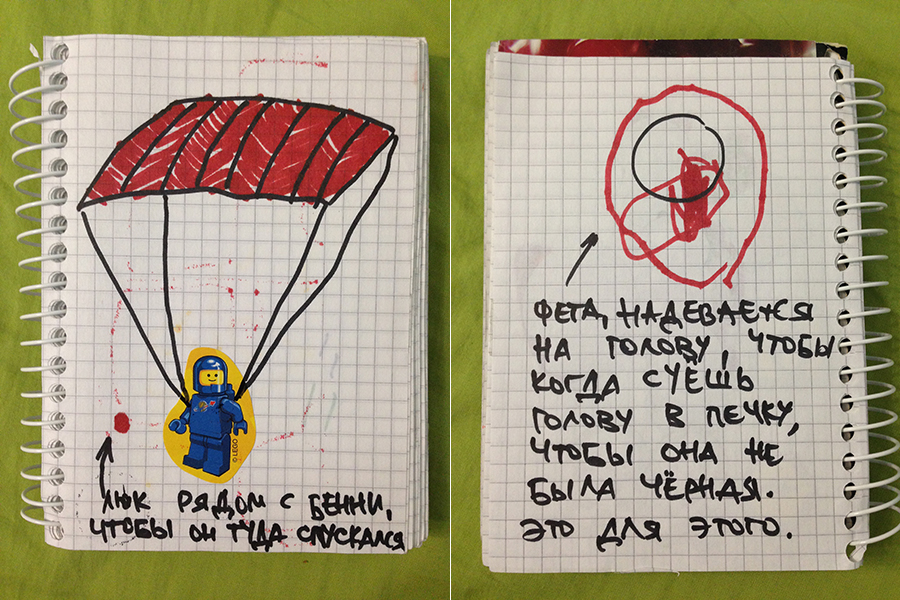 © LEGO
ЛЮК РЯДОМ С БЕННИ,
ЧТОБЫ ОН ТУДА СПУСКАЛСЯ
ФЕТА, НАДЕВАЕТСЯ
НА ГОЛОВУ, ЧТОБЫ
КОГДА СУЁШЬ
ГОЛОВУ В ПЕЧКУ,
ЧТОБЫ ОНА НЕ
БЫЛА ЧЁРНАЯ.
ЭТО ДЛЯ ЭТОГО.